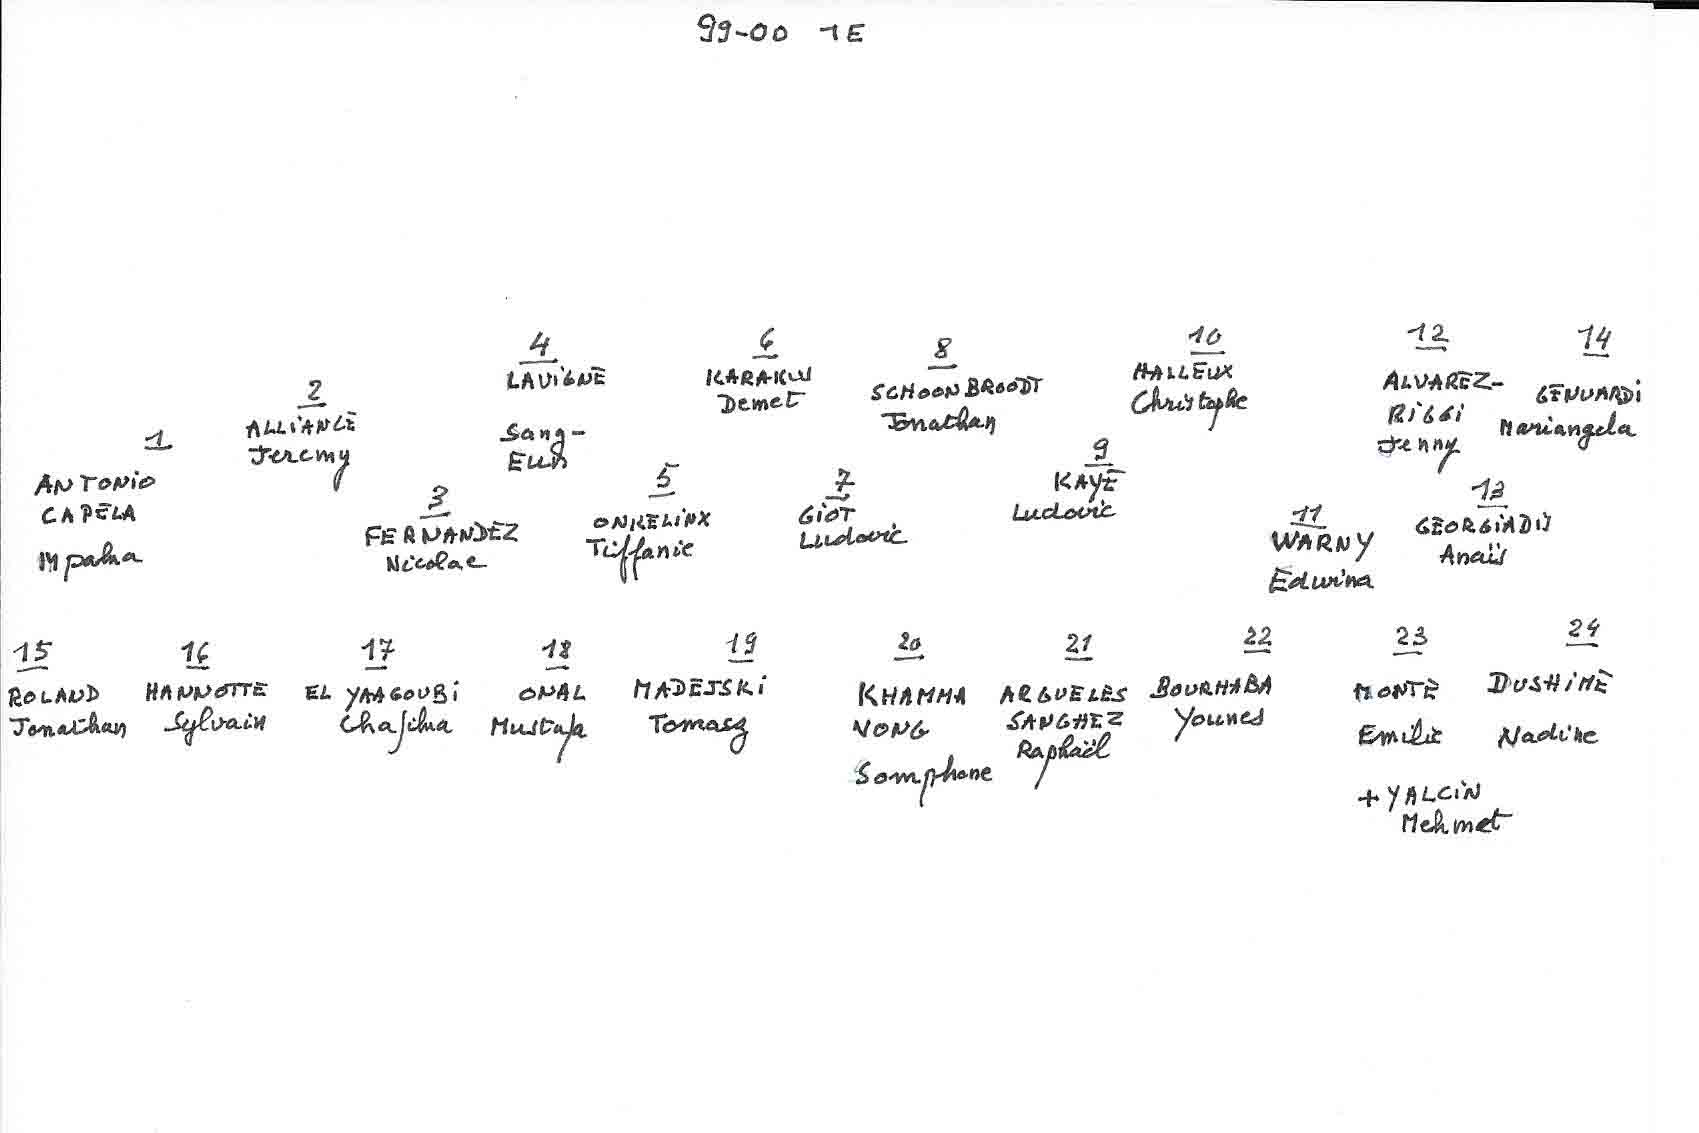 99-00 1E
1
ANTONIO
CAPELA
Mpaka
2
ALLIANCE
Jeremy
3
FERNANDEZ
Nicolae
4
LAVIGNE
Sang-
Eun
5
ONKELINX
Tiffanie
6
KARAKUS
Demet
7
GIOT
Ludovic
8
SCHOONBROODT
Jonathan
9
KAYE
Ludovic
10
HALLEUX
Christophe
11
WARNY
Edwina
12
ALVAREZ-
RIGGI
Jenny
13
GEORGIADIS
Anaïs
14
GENUARDI
Mariangela
15
ROLAND
Jonathan
16
HANNOTTE
Sylvain
17
EL YAAGOUBI
18
ONAL
Mustafa
19
MADEJSKI
Tomasz
20
KHAMMA
VONG
Somphone
21
ARGUELES
SANCHEZ
Raphaël
22
BOURHABA
Younes
23
MONTE
Emilie
24
DUSHIME
Nadine
+ YALCIN
Mehmet